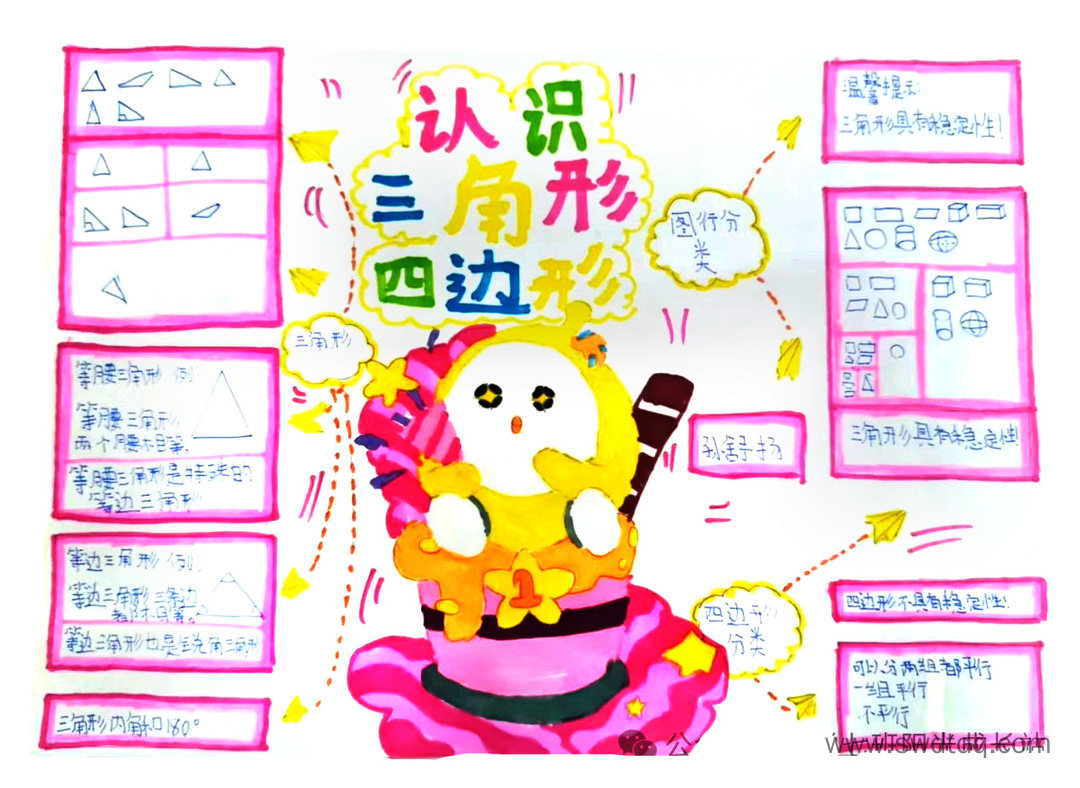 认识
三角形
四边形
三角形
等腰三角形 例:
等腰三角形
两个腰相等,
等腰三角形是特殊的
等边三角形
等边三角形 例:
等边三角形三条边
都相等。
等边三角形也是锐角三角形
三角形内角和180°
1
温馨提示:
三角形具有稳定性!
图行分
类
三角形具有稳定性!
孙舒扬
四边形
分类
四边形不具有稳定性!
可以分两组都平行
一组平行
不平行
公
www.swdtdq.com